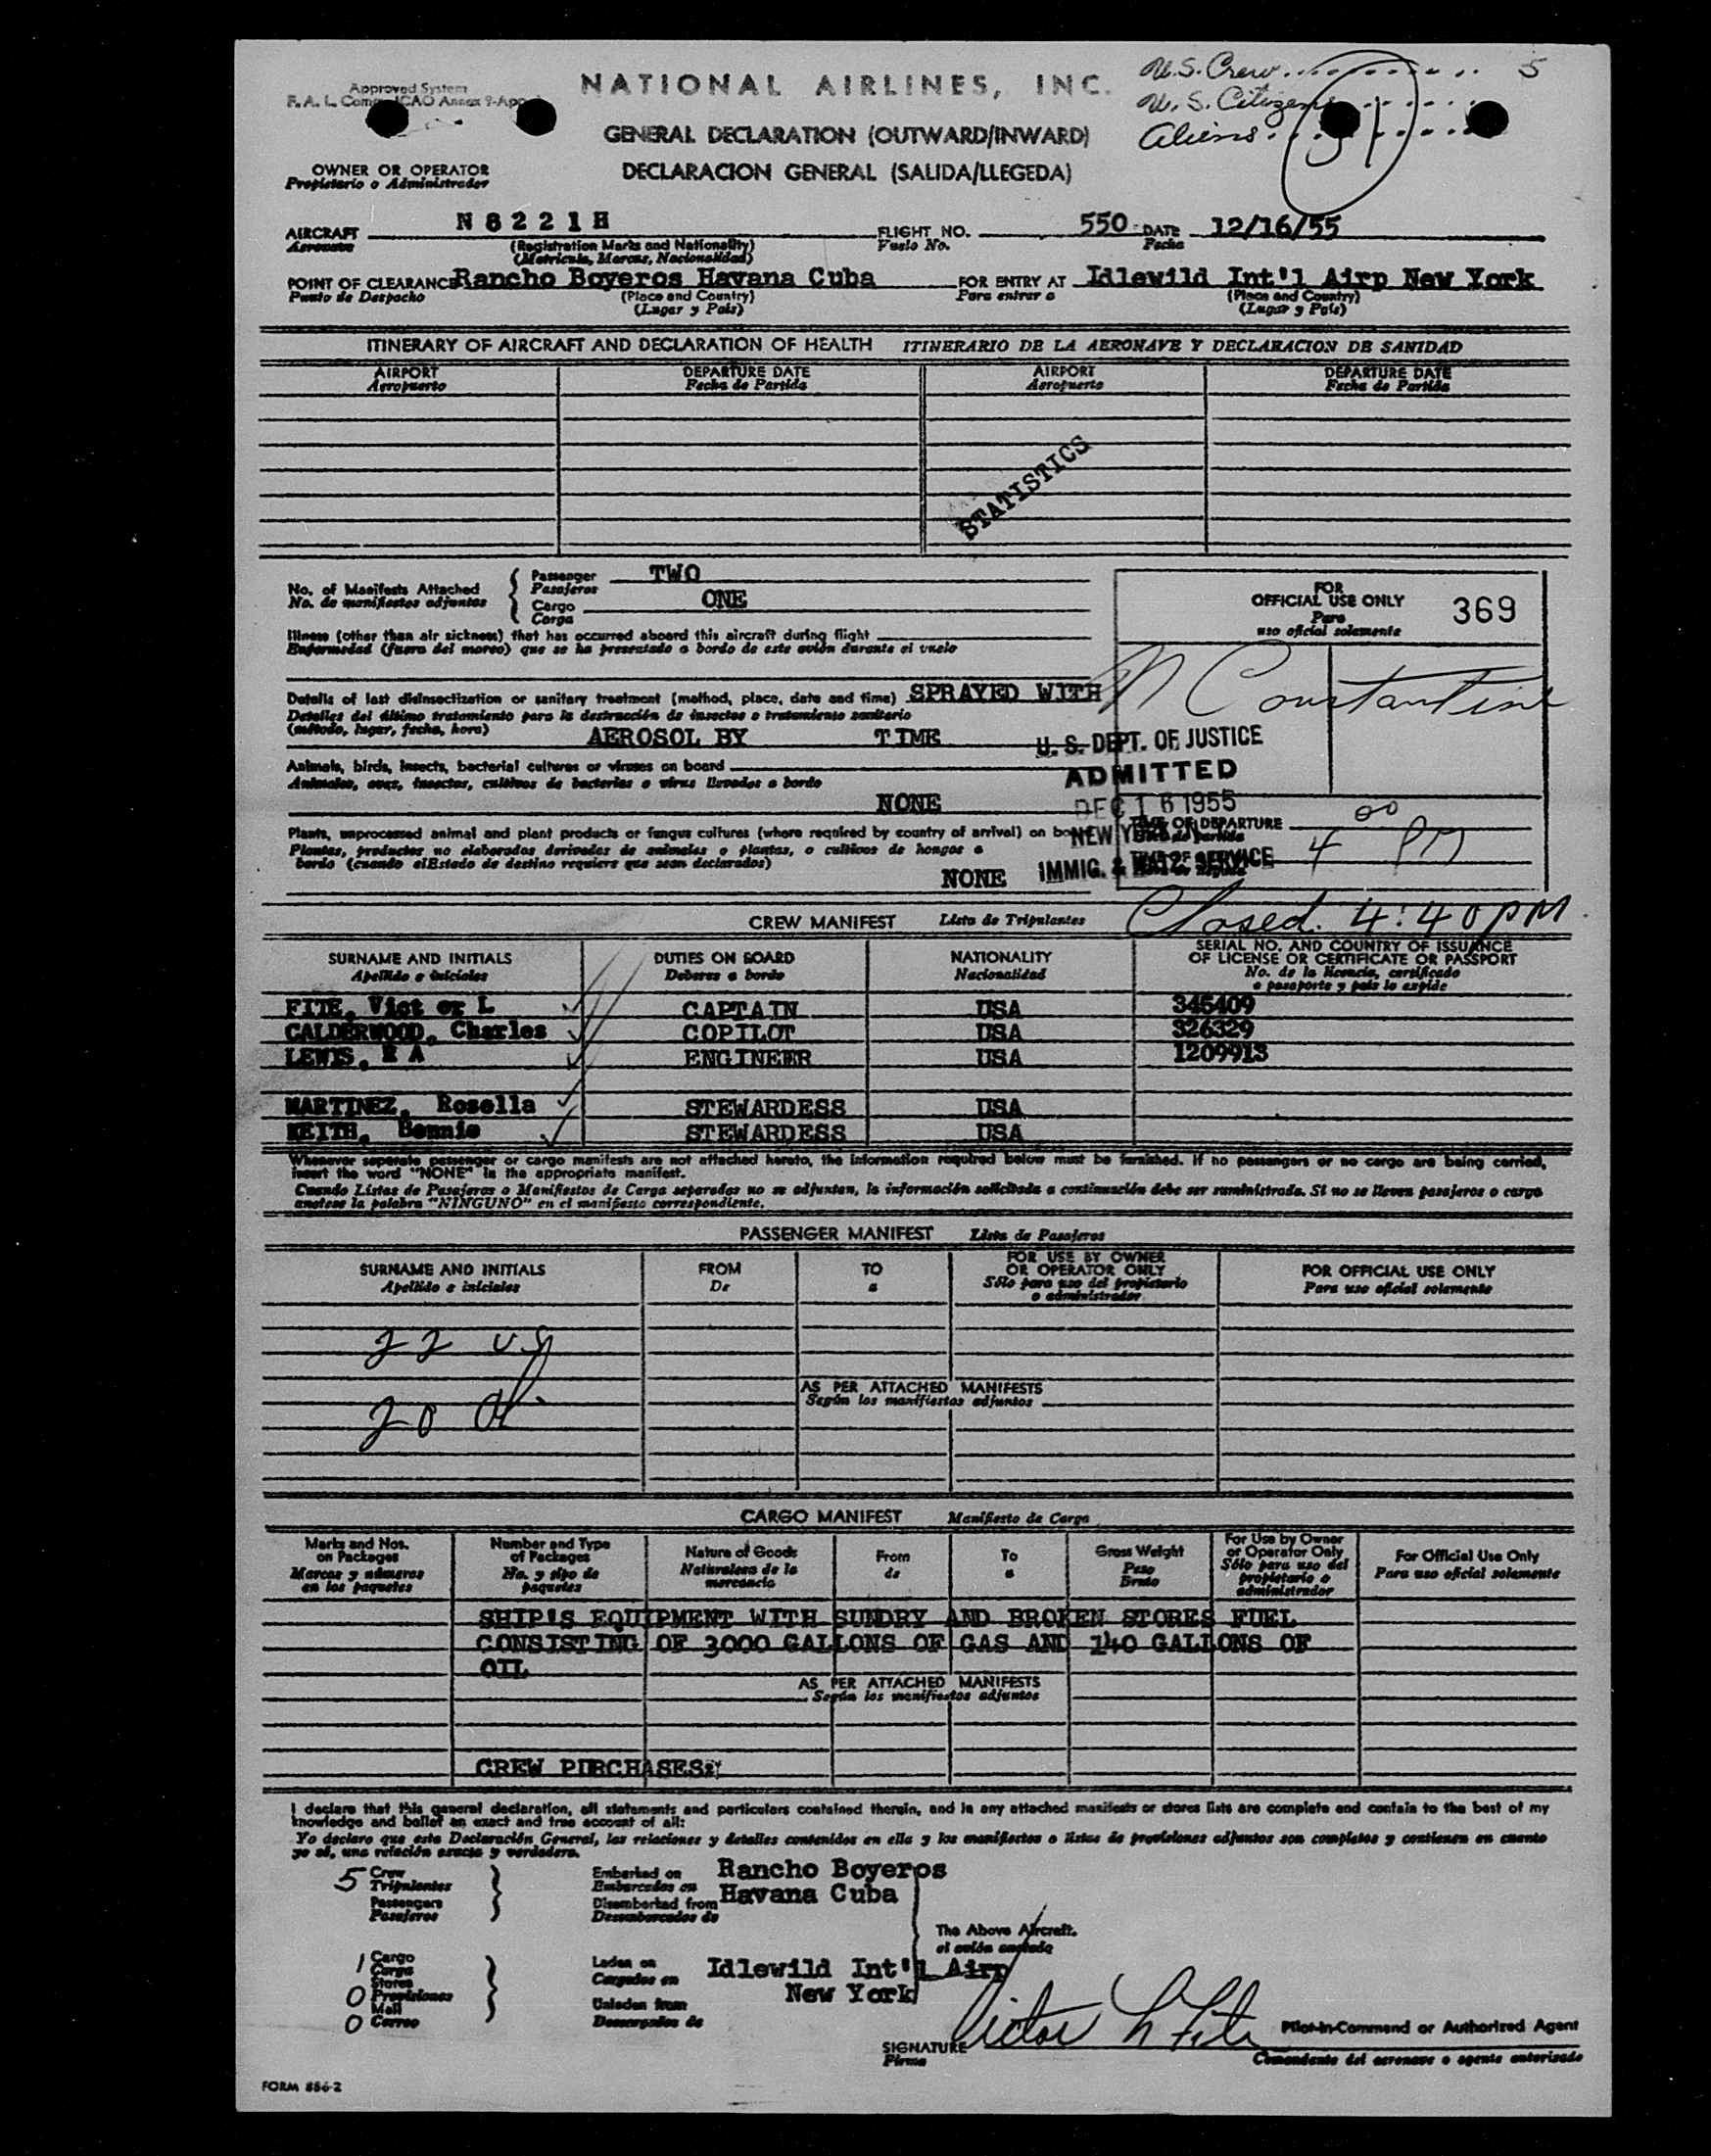 Approved System
NATIONAL AIRLINES, INC.
U.S. Crew............ 5
U.S. Citizens
Aliens
51
GENERAL DECLARATION (OUTWARD/INWARD)
DECLARACION GENERAL (SALIDA/LLEGEDA)
OWNER OR OPERATOR
Propietario o Administrador
AIRCRAFT N 8 2 2 1 H FLIGHT NO. 550 DATE 12/16/55
Aeronave (Registration Marks and Nationality) Vuelo No. Fecha
(Matricula, Marcas, Nacionalidad)
POINT OF CLEARANCE Rancho Boyeros Havana Cuba FOR ENTRY AT Idlewild Int'l Airp New York
Punto de Despacho (Place and Country) Para entrar a (Place and Country)
(Lugar y País) (Lugar y País)
ITINERARY OF AIRCRAFT AND DECLARATION OF HEALTH ITINERARIO DE LA AERONAVE Y DECLARACION DE SANIDAD
AIRPORT DEPARTURE DATE AIRPORT DEPARTURE DATE
Aeropuerto Fecha de Partida Aeropuerto Fecha de Partida
STATISTICS
No. of Manifests Attached Passenger TWO
No. de manifiestos adjuntos Pasajeros
Cargo ONE
Carga
FOR
OFFICIAL USE ONLY 369
Para
uso oficial solamente
Illness (other than air sickness) that has occurred aboard this aircraft during flight
Enfermedad (fuera del mareo) que se ha presentado a bordo de este avión durante el vuelo
N Constantine
Details of last disinsectization or sanitary treatment (method, place, date and time) SPRAYED WITH
Detalles del último tratamiento para la destrucción de insectos o tratamiento sanitario
(método, lugar, fecha, hora) AEROSOL BY TIME
U. S. DEPT. OF JUSTICE
ADMITTED
DEC 16 1955
NEW YORK
IMMIG. & NATZ. SERVICE
Animals, birds, insects, bacterial cultures or viruses on board
Animales, aves, insectos, cultivos de bacterias o virus llevados a bordo
NONE
OF DEPARTURE
4 00 PM
Plants, unprocessed animal and plant products or fungus cultures (where required by country of arrival) on board
Plantas, productos no elaborados derivados de animales o plantas, o cultivos de hongos a
bordo (cuando elEstado de destino requiere que sean declarados)
NONE
Closed. 4:40 PM
CREW MANIFEST Lista de Tripulantes
SURNAME AND INITIALS DUTIES ON BOARD NATIONALITY SERIAL NO. AND COUNTRY OF ISSUANCE
OF LICENSE OR CERTIFICATE OR PASSPORT
Apellido e iniciales Deberes a bordo Nacionalidad No. de la licencia, certificado
o pasaporte y país lo expide
FITE, Vict or L CAPTAIN USA 345409
CALDERWOOD, Charles COPILOT USA 326329
LEWIS, E A ENGINEER USA 1209913
MARTINEZ, Rosella STEWARDESS USA
KEITH, Bennie STEWARDESS USA
Whenever seperate passenger or cargo manifests are not attached hereto, the information required below must be furnished. If no passengers or no cargo are being carried,
insert the word "NONE" in the appropriate manifest.
Cuando Listas de Pasajeros o Manifiestos de Carga separados no se adjuntan, la información solicitada a continuación debe ser suministrada. Si no se lleven pasajeros o carga
anotese la palabra "NINGUNO" en el manifiesto correspondiente.
PASSENGER MANIFEST Lista de Pasajeros
SURNAME AND INITIALS FROM TO FOR USE BY OWNER
OR OPERATOR ONLY FOR OFFICIAL USE ONLY
Apellido e iniciales De a Sólo para uso del propietario
o administrador Para uso oficial solamente
22 US
AS PER ATTACHED MANIFESTS
Según los manifiestos adjuntos
20 al
CARGO MANIFEST Manifiesto de Carga
Marks and Nos.
on Packages
Marcas y números
en los paquetes
Number and Type
of Packages
No. y tipo de
paquetes
Nature of Goods
Naturaleza de la
mercancia
From
de
To
a
Gross Weight
Peso
Bruto
For Use by Owner
or Operator Only
Sólo para uso del
propietario o
administrador
For Official Use Only
Para uso oficial solamente
SHIP'S EQUIPMENT WITH SUNDRY AND BROKEN STORES FUEL
CONSISTING OF 3000 GALLONS OF GAS AND 140 GALLONS OF
OIL
AS PER ATTACHED MANIFESTS
Según los manifiestos adjuntos
CREW PURCHASES:
I declare that this general declaration, all statements and particulars contained therein, and in any attached manifests or stores lists are complete and contain to the best of my
knowledge and belief an exact and true account of all:
Yo declaro que esta Declaración General, las relaciones y detalles contenidos en ella y los manifiestos o listas de provisiones adjuntos son completos y contienen en cuanto
yo sé, una relación exacta y verdadera.
5 Crew
Tripulantes
Passengers
Pasajeros
Embarked on
Embarcados en
Disembarked from
Desembarcados de
Rancho Boyeros
Havana Cuba
The Above Aircraft.
el avión
1 Cargo
Carga
0 Stores
Provisiones
0 Mail
Correo
Laden on
Cargados en
Unladen from
Descargados de
Idlewild Int'l Airp
New York
SIGNATURE Victor L Fite Pilot-in-Command or Authorized Agent
Firma Comandante del aeronave o agente autorizado
FORM 886-2